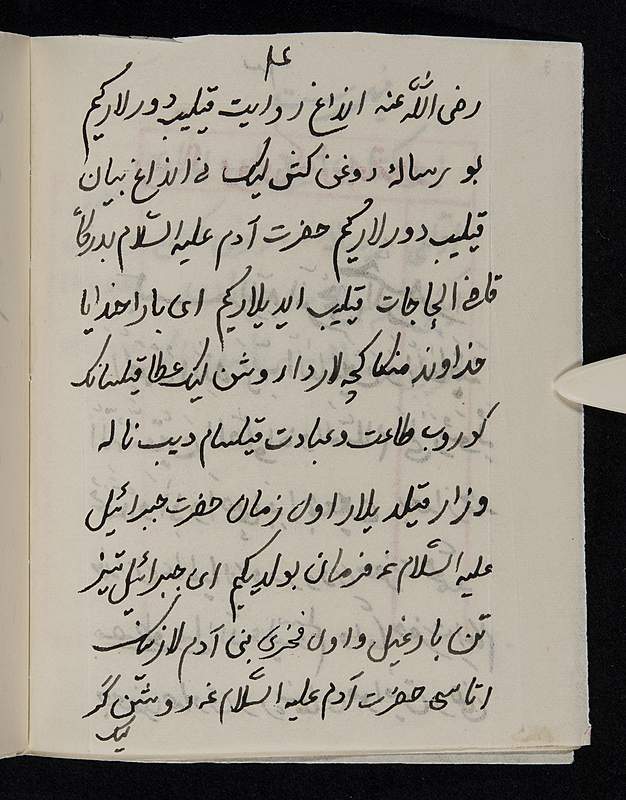 رضی اللّٰه عنه انداغ روایت قیلیب دورلارکیم
بو رسالهٔ روغن کش لیک نی انداغ بیان
قیلیب دورلارکیم حضرت آدم علیه السّلام بدرکاه
قاضی الحاجات قیلیب ایدیلارکیم ای بارا خدایا
خداوند منکا کچه لاردا روشن لیک عطا قیلسانک
کوروب طاعت و عبادت قیلسام دیب ناله
و زار قیلدیلار اول زمان حضرت جبرائیل
علیه السّلام غه فرمان بولدیکیم ای جبرائیل تیز
تن بارغیل و اول فخری بنی آدم لارنینک
اتاسی حضرت آدم علیه السّلام غه روشن کر
لیک